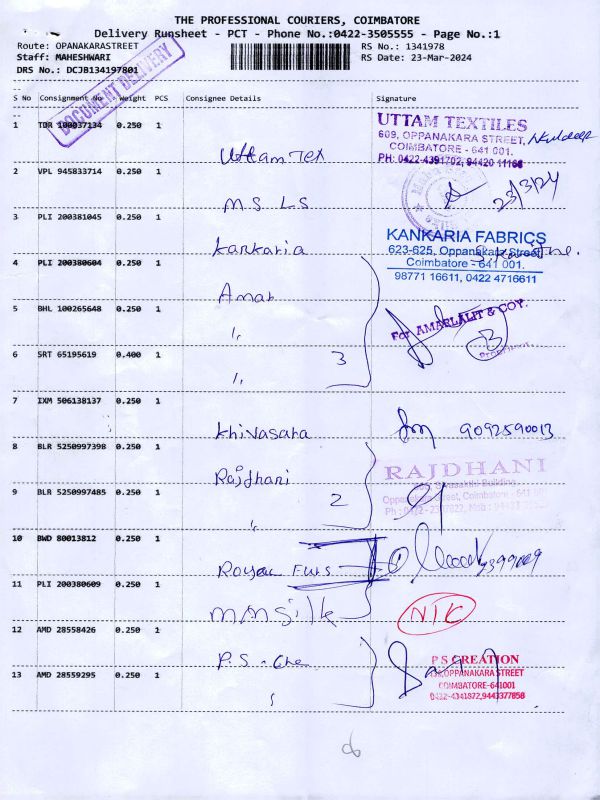 THE PROFESSIONAL COURIERS, COIMBATORE
Delivery Runsheet - PCT - Phone No.:0422-3505555 - Page No.:1
Route: OPANAKARASTREET
RS No.: 1341978
Staff: MAHESHWARI
RS Date: 23-Mar-2024
DRS No.: DCJB134197801
DOCUMENT DELIVERY
S No Consignment No Weight PCS Consignee Details Signature
1 TDR 100037134 0.250 1 Uttam Tex
UTTAM TEXTILES
609, OPPANAKARA STREET,
COIMBATORE - 641 001.
PH: 0422-4391702, 94420 11166
2 VPL 945833714 0.250 1 M.S. L.S 23/3/24
3 PLI 200381045 0.250 1 Kankaria
KANKARIA FABRICS
623-625, Oppanakara Street,
Coimbatore - 641 001.
98771 16611, 0422 4716611
4 PLI 200380604 0.250 1 Amar
5 BHL 100265648 0.250 1 "
For AMARLALIT & COY.
6 SRT 65195619 0.400 1 " 3
7 IXM 506138137 0.250 1 Khivasara 9092590013
8 BLR 5250997398 0.250 1 Rajdhani
RAJDHANI
Sivasakthi Building,
Oppanakara Street, Coimbatore - 641 001
9 BLR 5250997485 0.250 1 " 2
10 BWD 80013812 0.250 1 Royal Furs
11 PLI 200380609 0.250 1 MMSilk NIK
12 AMD 28558426 0.250 1 P.S. - Che
P S CREATION
OPPANAKARA STREET
COIMBATORE-641001
0422-4341872,9443377858
13 AMD 28559295 0.250 1 "